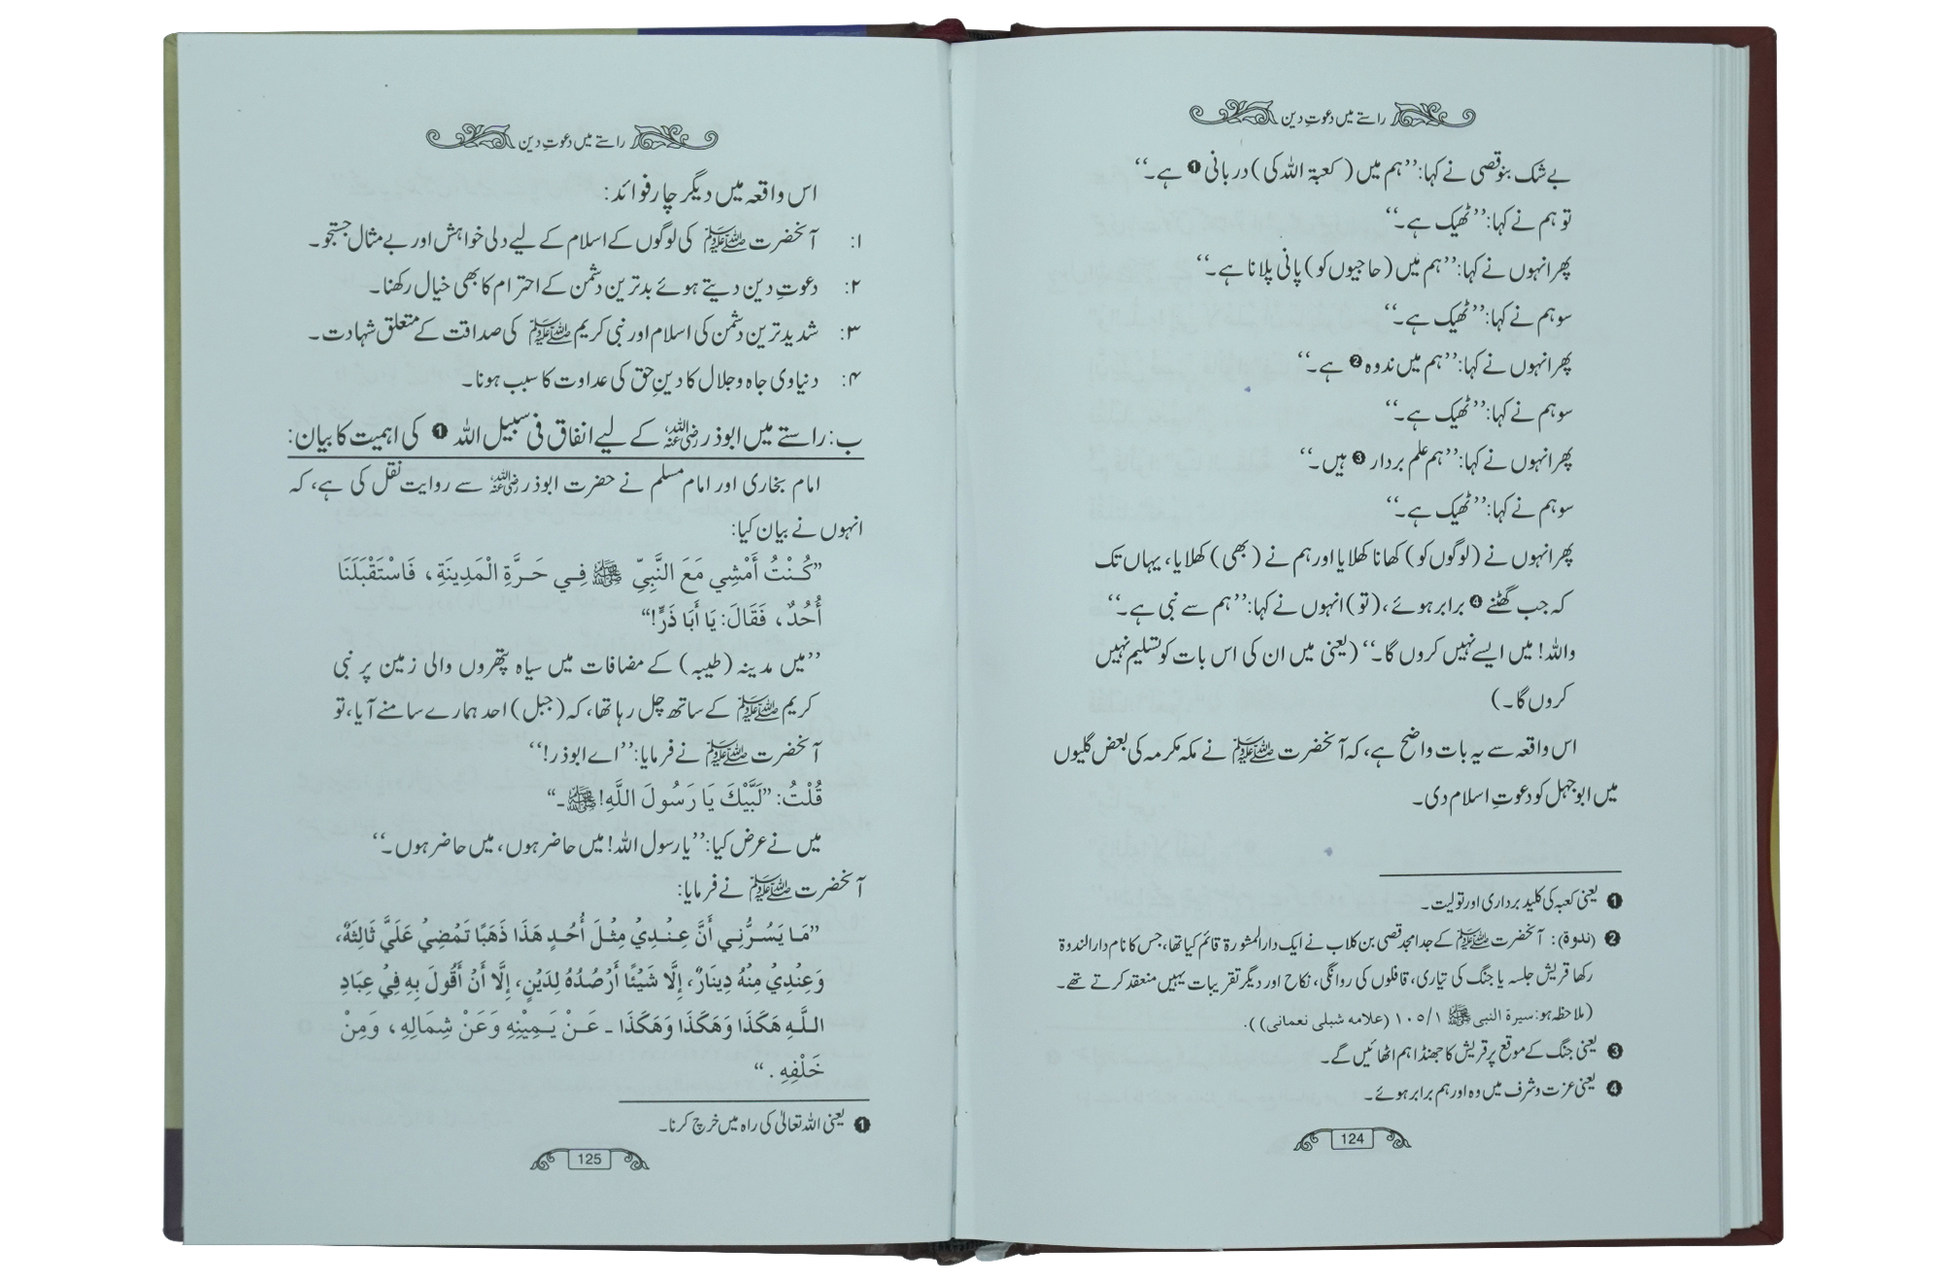 راستے میں دعوتِ دین
بے شک بنوقصی نے کہا: ’’ہم میں (کعبۃ اللہ کی) دربانی ❶ ہے۔‘‘
تو ہم نے کہا: ’’ٹھیک ہے۔‘‘
پھر انہوں نے کہا: ’’ہم میں (حاجیوں کو) پانی پلانا ہے۔‘‘
سو ہم نے کہا: ’’ٹھیک ہے۔‘‘
پھر انہوں نے کہا: ’’ہم میں ندوہ ❷ ہے۔‘‘
سو ہم نے کہا: ’’ٹھیک ہے۔‘‘
پھر انہوں نے کہا: ’’ہم علم بردار ❸ ہیں۔‘‘
سو ہم نے کہا: ’’ٹھیک ہے۔‘‘
پھر انہوں نے (لوگوں کو) کھانا کھلایا اور ہم نے (بھی) کھلایا، یہاں تک
کہ جب گھٹنے ❹ برابر ہوئے، (تو) انہوں نے کہا: ’’ہم سے نبی ہے۔‘‘
واللہ! میں ایسے نہیں کروں گا۔‘‘ (یعنی میں ان کی اس بات کو تسلیم نہیں
کروں گا۔)
اس واقعہ سے یہ بات واضح ہے، کہ آنحضرت ﷺ نے مکہ مکرمہ کی بعض گلیوں
میں ابوجہل کو دعوتِ اسلام دی۔
❶ یعنی کعبہ کی کلید برداری اور تولیت۔
❷ (ندوۃ): آنحضرت ﷺ کے جد امجد قصی بن کلاب نے ایک دار المشورۃ قائم کیا تھا، جس کا نام دار الندوۃ
رکھا قریش جلسہ یا جنگ کی تیاری، قافلوں کی روانگی، نکاح اور دیگر تقریبات یہیں منعقد کرتے تھے۔
(ملاحظہ ہو: سیرۃ النبی ﷺ ١/١٠٥ (علامہ شبلی نعمانی))۔
❸ یعنی جنگ کے موقع پر قریش کا جھنڈا ہم اٹھائیں گے۔
❹ یعنی عزت و شرف میں وہ اور ہم برابر ہوئے۔
124
راستے میں دعوتِ دین
اس واقعہ میں دیگر چار فوائد:
۱: آنحضرت ﷺ کی لوگوں کے اسلام کے لیے دلی خواہش اور بے مثال جستجو۔
۲: دعوتِ دین دیتے ہوئے بدترین دشمن کے احترام کا بھی خیال رکھنا۔
۳: شدید ترین دشمن کی اسلام اور نبی کریم ﷺ کی صداقت کے متعلق شہادت۔
۴: دنیاوی جاہ و جلال کا دینِ حق کی عداوت کا سبب ہونا۔
ب: راستے میں ابوذر رضی اللہ عنہ کے لیے انفاق فی سبیل اللہ ❶ کی اہمیت کا بیان:
امام بخاری اور امام مسلم نے حضرت ابوذر رضی اللہ عنہ سے روایت نقل کی ہے، کہ
انہوں نے بیان کیا:
”كُنْتُ أَمْشِي مَعَ النَّبِيِّ ﷺ فِي حَرَّةِ الْمَدِينَةِ، فَاسْتَقْبَلَنَا
أُحُدٌ، فَقَالَ: يَا أَبَا ذَرٍّ!“
’’میں مدینہ (طیبہ) کے مضافات میں سیاہ پتھروں والی زمین پر نبی
کریم ﷺ کے ساتھ چل رہا تھا، کہ (جبل) احد ہمارے سامنے آیا، تو
آنحضرت ﷺ نے فرمایا: ’’اے ابوذر!‘‘
قُلْتُ: ”لَبَّيْكَ يَا رَسُولَ اللَّهِ! ﷺ۔“
میں نے عرض کیا: ’’یا رسول اللہ! میں حاضر ہوں، میں حاضر ہوں۔‘‘
آنحضرت ﷺ نے فرمایا:
”مَا يَسُرُّنِي أَنَّ عِنْدِيْ مِثْلَ أُحُدٍ هَذَا ذَهَبًا تَمْضِيْ عَلَيَّ ثَالِثَةٌ،
وَعِنْدِيْ مِنْهُ دِينَارٌ، إِلَّا شَيْئًا أَرْصُدُهُ لِدَيْنٍ، إِلَّا أَنْ أَقُولَ بِهِ فِيْ عِبَادِ
اللَّهِ هَكَذَا وَهَكَذَا وَهَكَذَا ـ عَنْ يَمِيْنِهِ وَعَنْ شِمَالِهِ، وَمِنْ
خَلْفِهِ.“
❶ یعنی اللہ تعالیٰ کی راہ میں خرچ کرنا۔
125